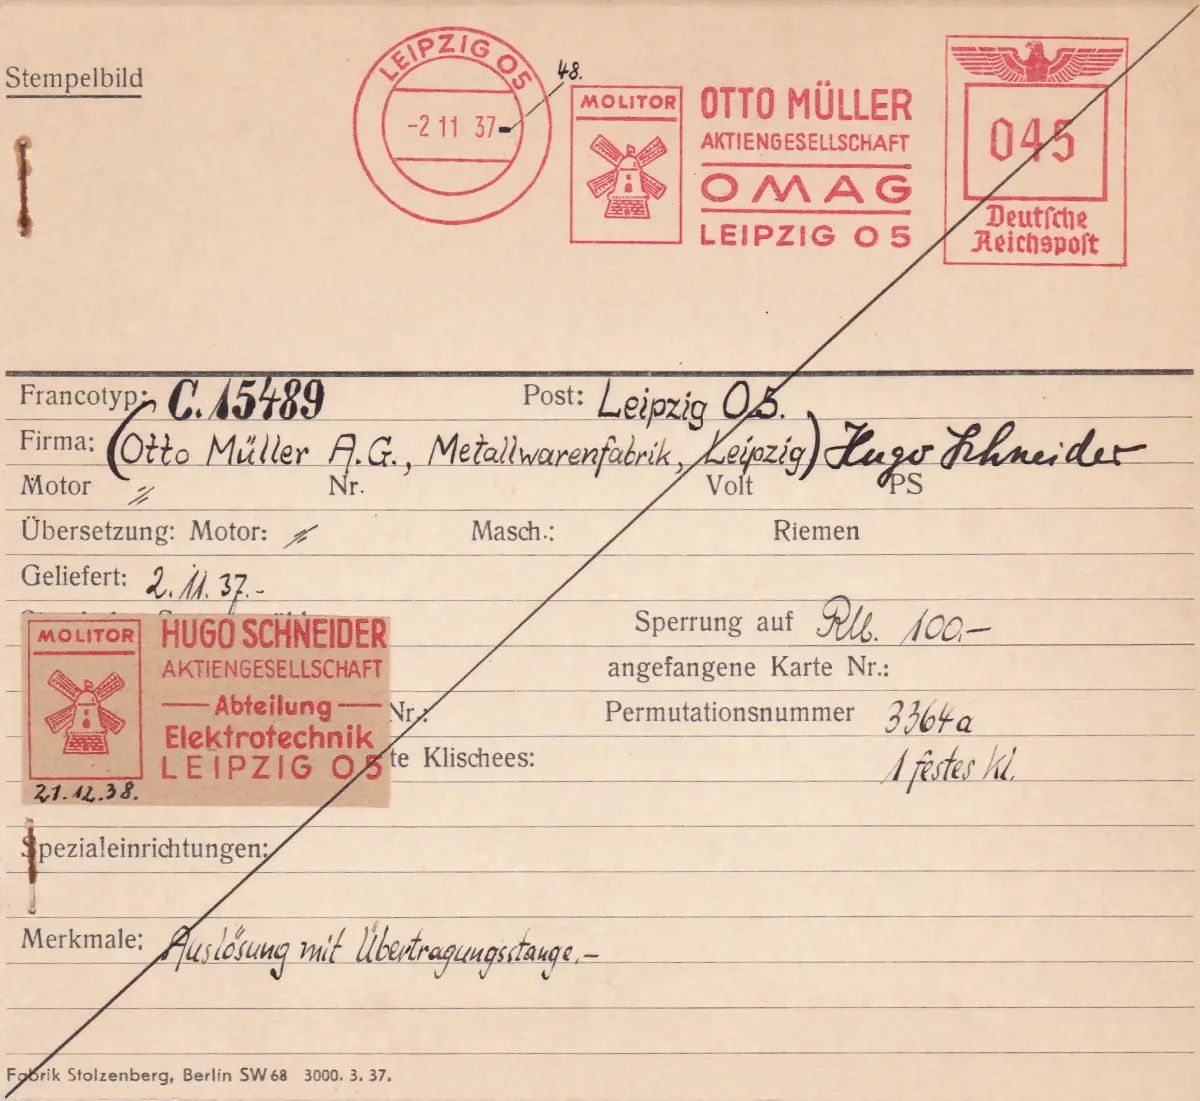 Stempelbild
LEIPZIG O5
-2 11 37-
48.
MOLITOR
OTTO MÜLLER
AKTIENGESELLSCHAFT
OMAG
LEIPZIG O 5
045
Deutsche
Reichspost
Francotyp: C. 15489 Post: Leipzig O5.
Firma: (Otto Müller A.G., Metallwarenfabrik, Leipzig) Hugo Schneider
Motor Nr. Volt PS
Übersetzung: Motor: Masch.: Riemen
Geliefert: 2.11.37.-
Sperrung auf 100.-
angefangene Karte Nr.:
Nr.: Permutationsnummer 3364a
te Klischees: 1 festes Kl.
MOLITOR
HUGO SCHNEIDER
AKTIENGESELLSCHAFT
Abteilung
Elektrotechnik
LEIPZIG O 5
21.12.38.
Spezialeinrichtungen:
Merkmale: Auslösung mit Übertragungsstange.-
Fabrik Stolzenberg, Berlin SW 68 3000. 3. 37.